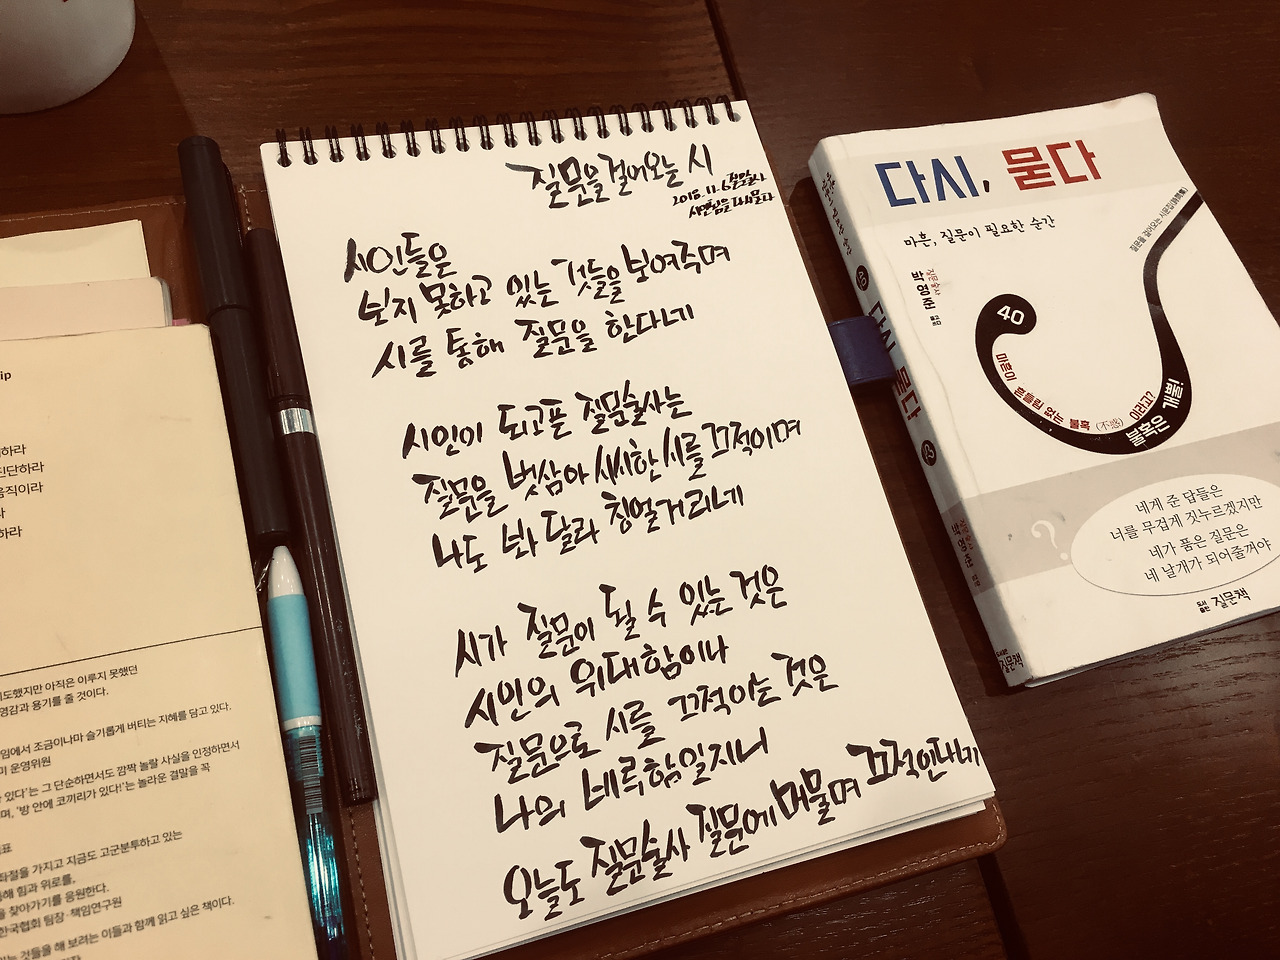 질문을 걸어오는 시
2018. 11. 6 질문술사
시인들은
보지 못하고 있는 것들을 보여주며
시를 통해 질문을 한다네
시인이 되고픈 질문술사는
질문을 벗삼아 시시한 시를 끄적이며
나도 봐 달라 칭얼거리네
시가 질문이 될 수 있는 것은
시인의 위대함이나
질문으로 시를 끄적이는 것은
나의 네륵함일지니
오늘도 질문술사 질문에 머물며 끄적인다네
다시, 묻다
마흔, 질문이 필요한 순간
질문을 걸어오는 시문집(詩問集)
박영준
질문술사
40
미혹이 흔들림 없는 불혹(不惑)이라고?
불혹은 개뿔!
네게 준 답들은
너를 무겁게 짓누르겠지만
네가 품은 질문은
네 날개가 되어줄꺼야
?
도서출판 질문책
다시, 묻다
질문책
ip
하라
진단하라
움직이라
라
하라
도했지만 아직은 이루지 못했던
영감과 용기를 줄 것이다.
임에서 조금이나마 슬기롭게 버티는 지혜를 담고 있다.
미 운영위원
있다'는 그 단순하면서도 깜짝 놀랄 사실을 인정하면서
며, '방 안에 코끼리가 있다!'는 놀라운 결말을 꼭
표
좌절을 가지고 지금도 고군분투하고 있는
해 힘과 위로를,
을 찾아가기를 응원한다.
한국협회 팀장·책임연구원
있는 것들을 해 보려는 이들과 함께 읽고 싶은 책이다.